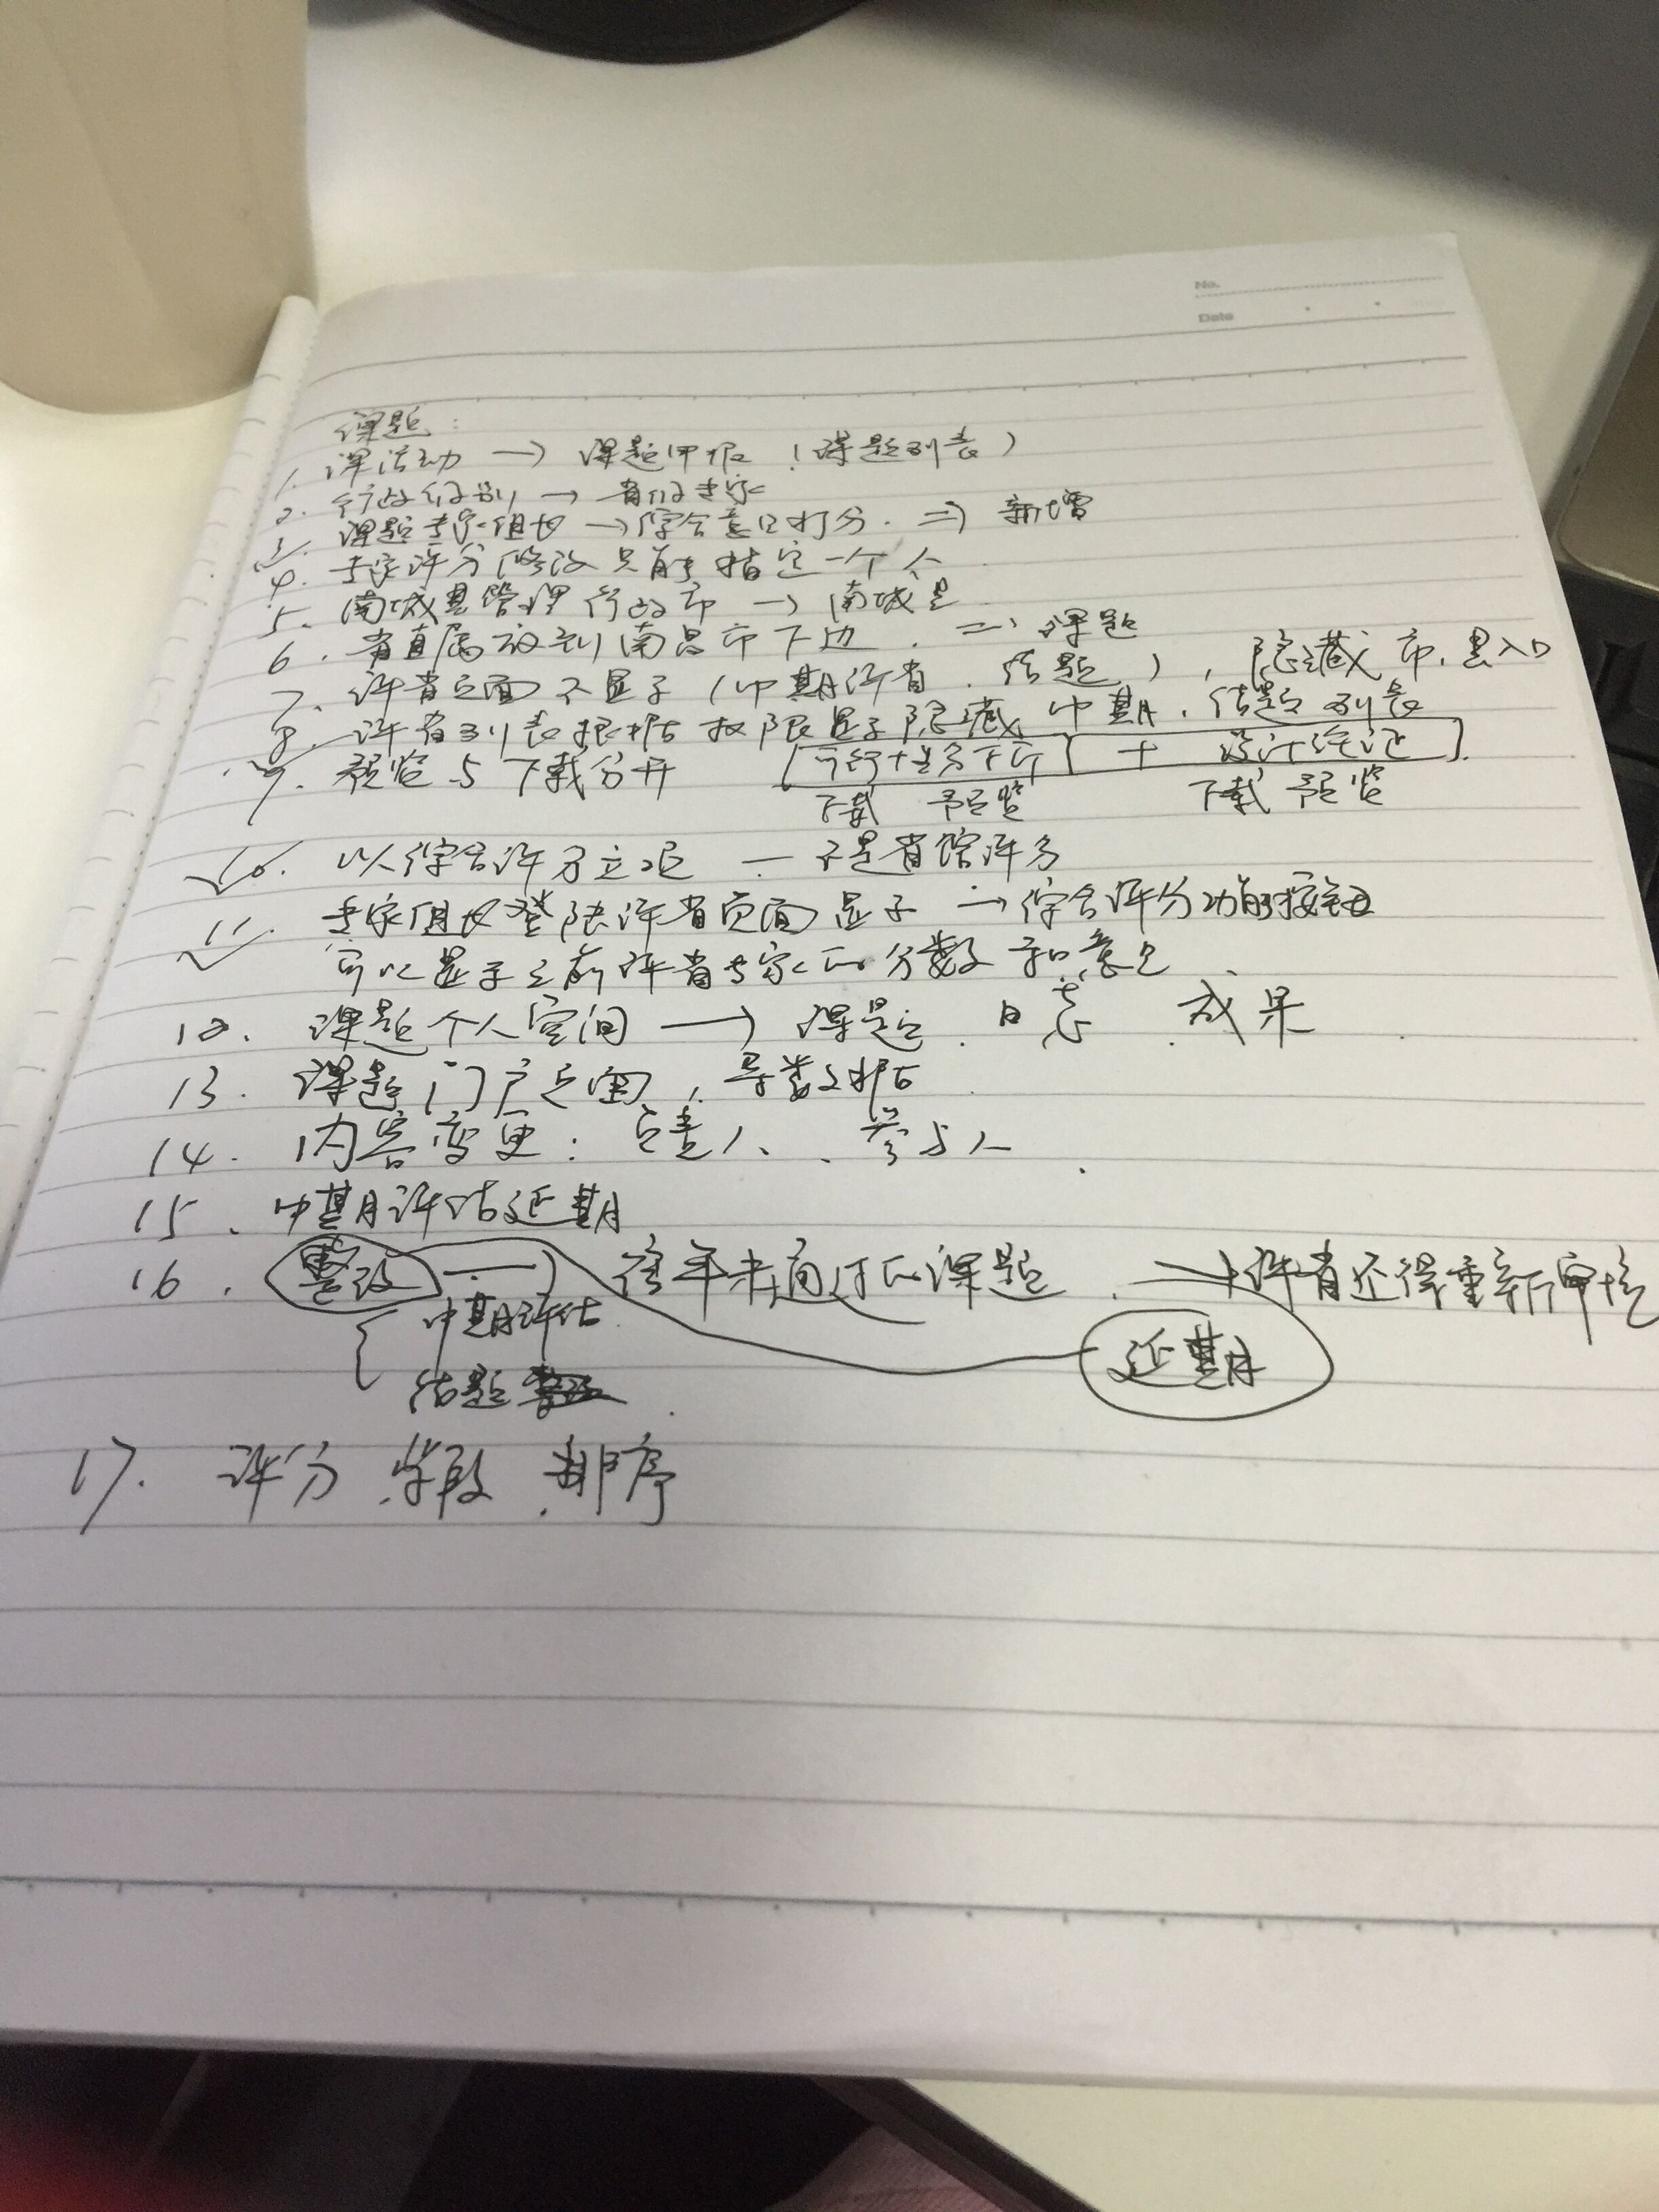 No.
Date
课题:
1. 课活动 → 课题申报 (课题列表)
2. 行政级别 → 省级专家
3. 课题专家组长 → 综合意见打分. ⇒ 新增
4. 专家评分修改只能指定一个人
5. 南城县管理行政市 → 南城县
6. 省直属放到南昌市下边. ⇒ 课题
7. 评审页面不显示 (中期评审、结题), 隐藏市、县入口
8. 评审列表根据权限显示隐藏 中期、结题列表
9. 预览与下载分开 + 设计论证
下载 预览 下载 预览
10. 以综合评分立项 — 不是省馆评分
11. 专家组长登陆评审页面显示 → 综合评分功能按钮
可以显示之前评审专家的分数和意见
12. 课题个人空间 → 课题、日志、成果
13. 课题门户页面, 导数据
14. 内容变更: 负责人、参与人
15. 中期评估延期
16. 整改 → 往年未通过的课题 → 评审还得重新审核
中期评估
延期
结题
17. 评分、学段、排序